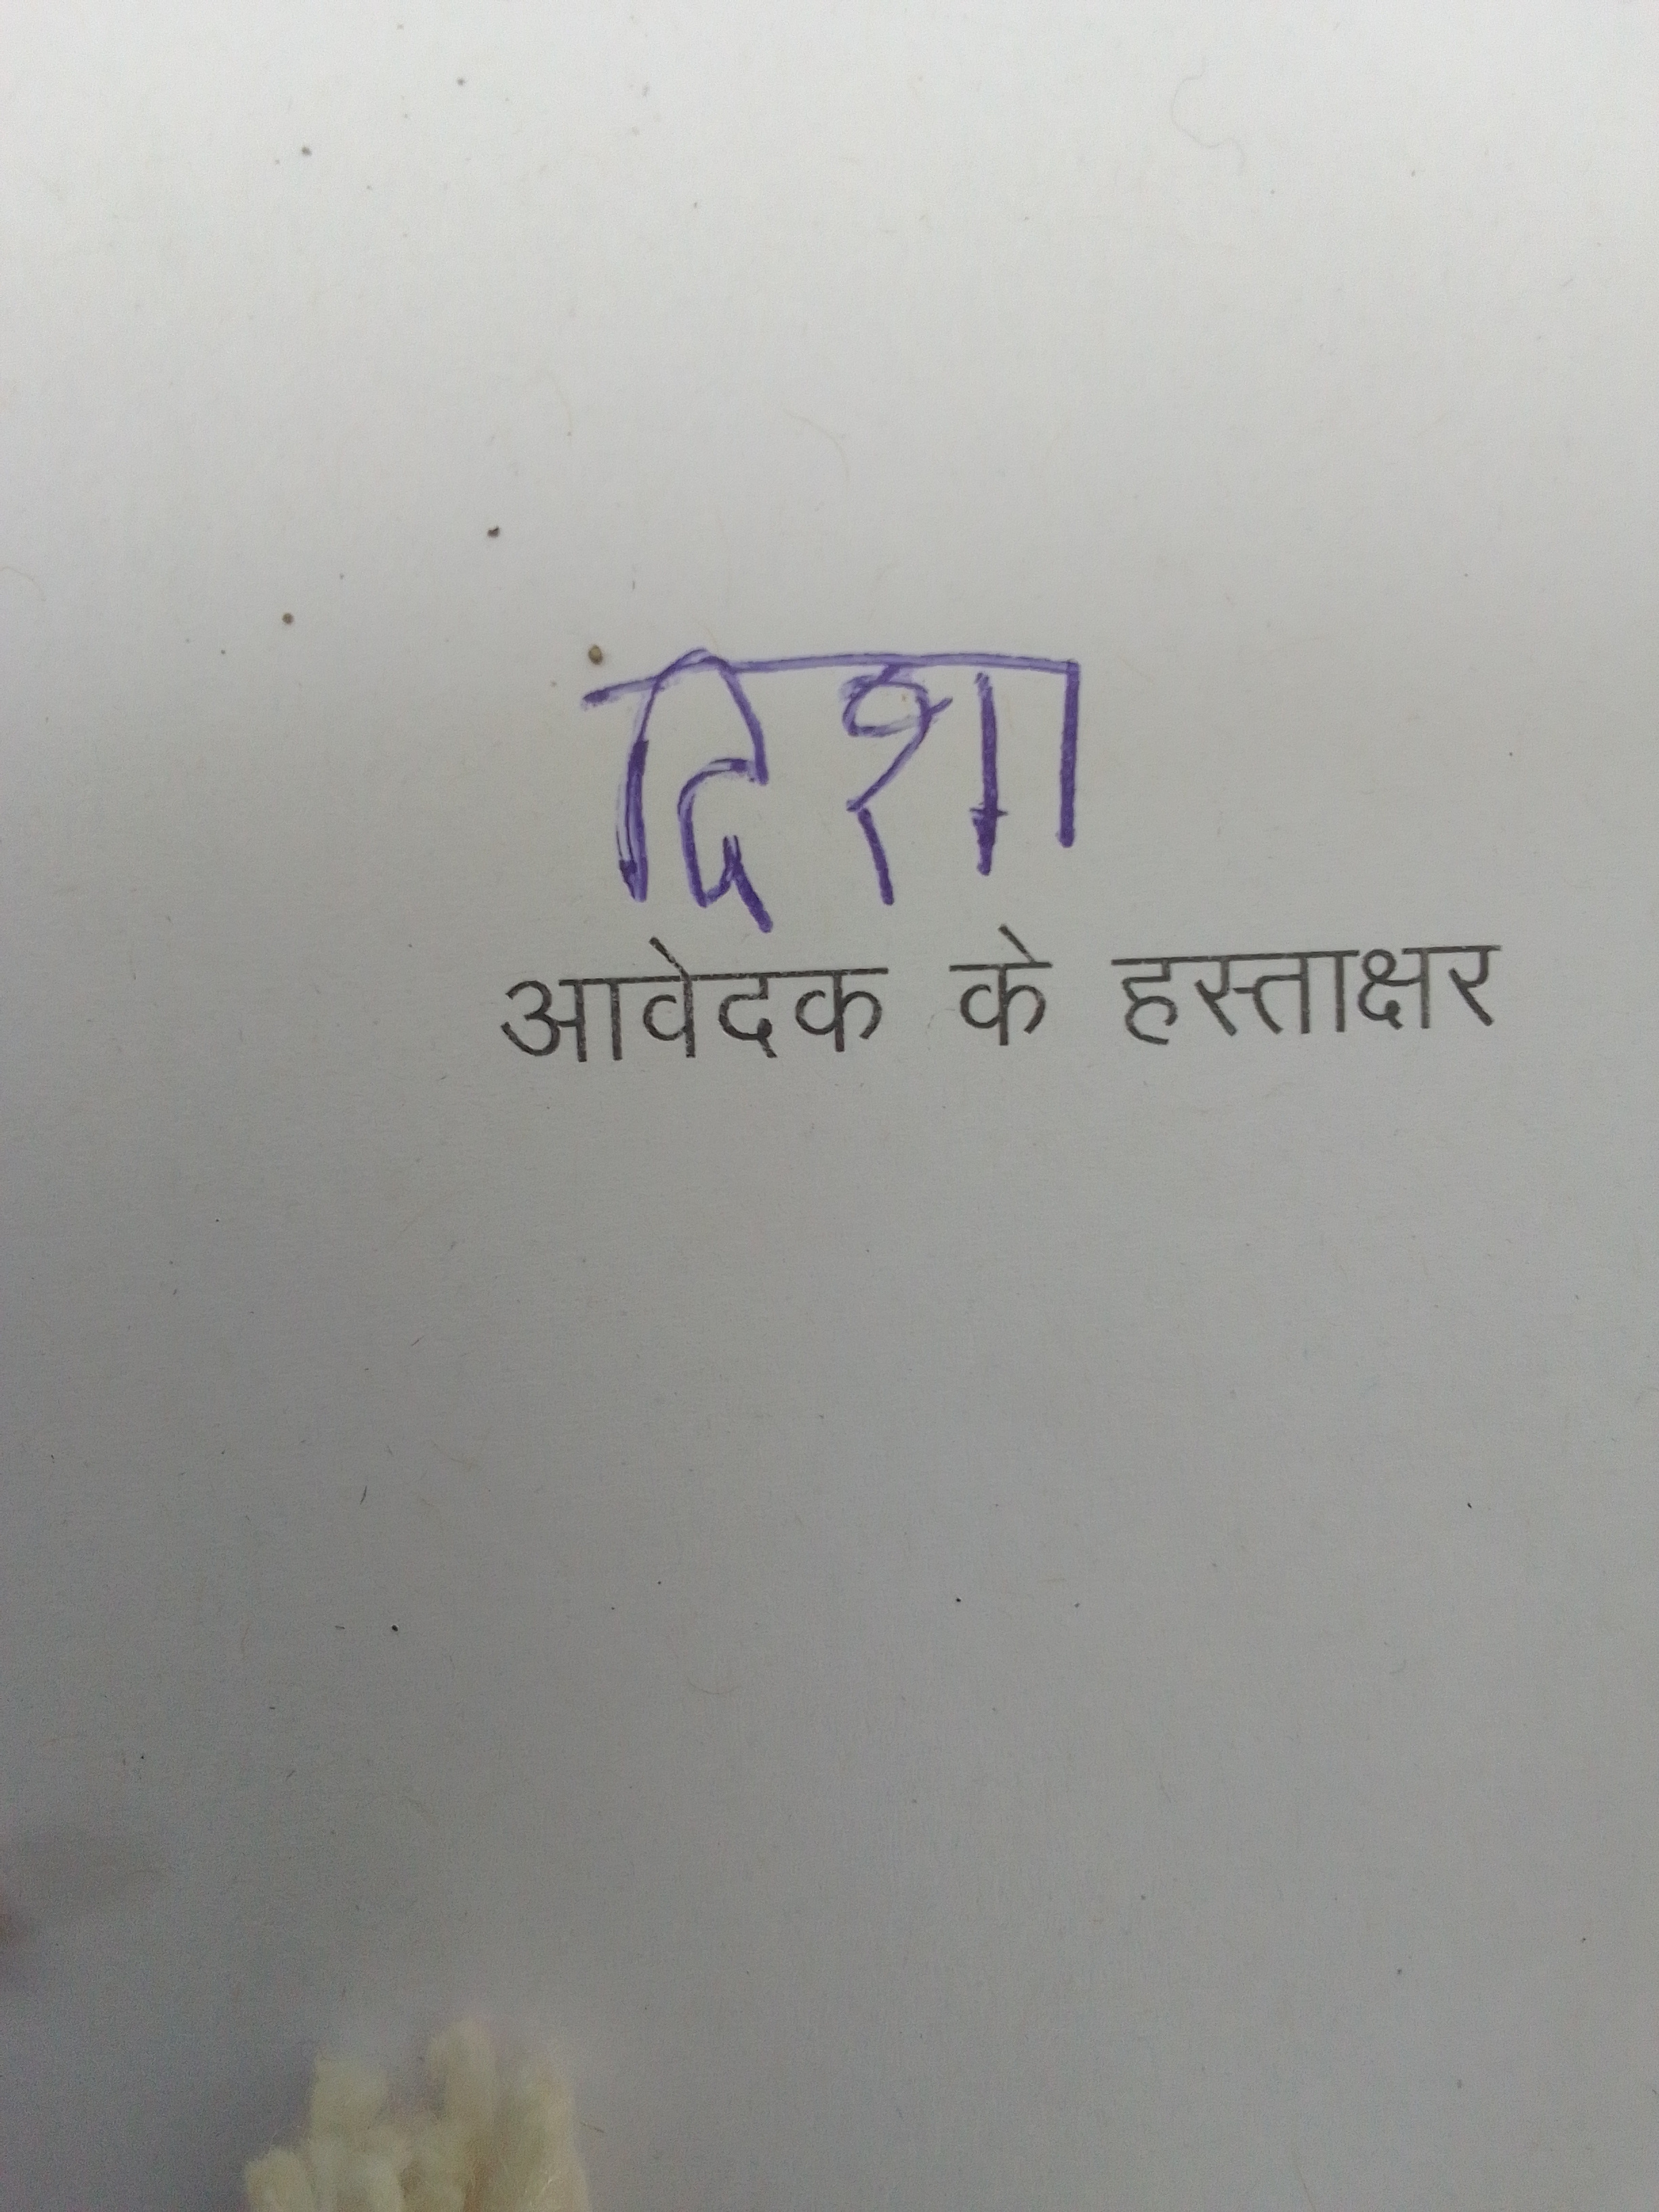 दिशा
आवेदक के हस्ताक्षर